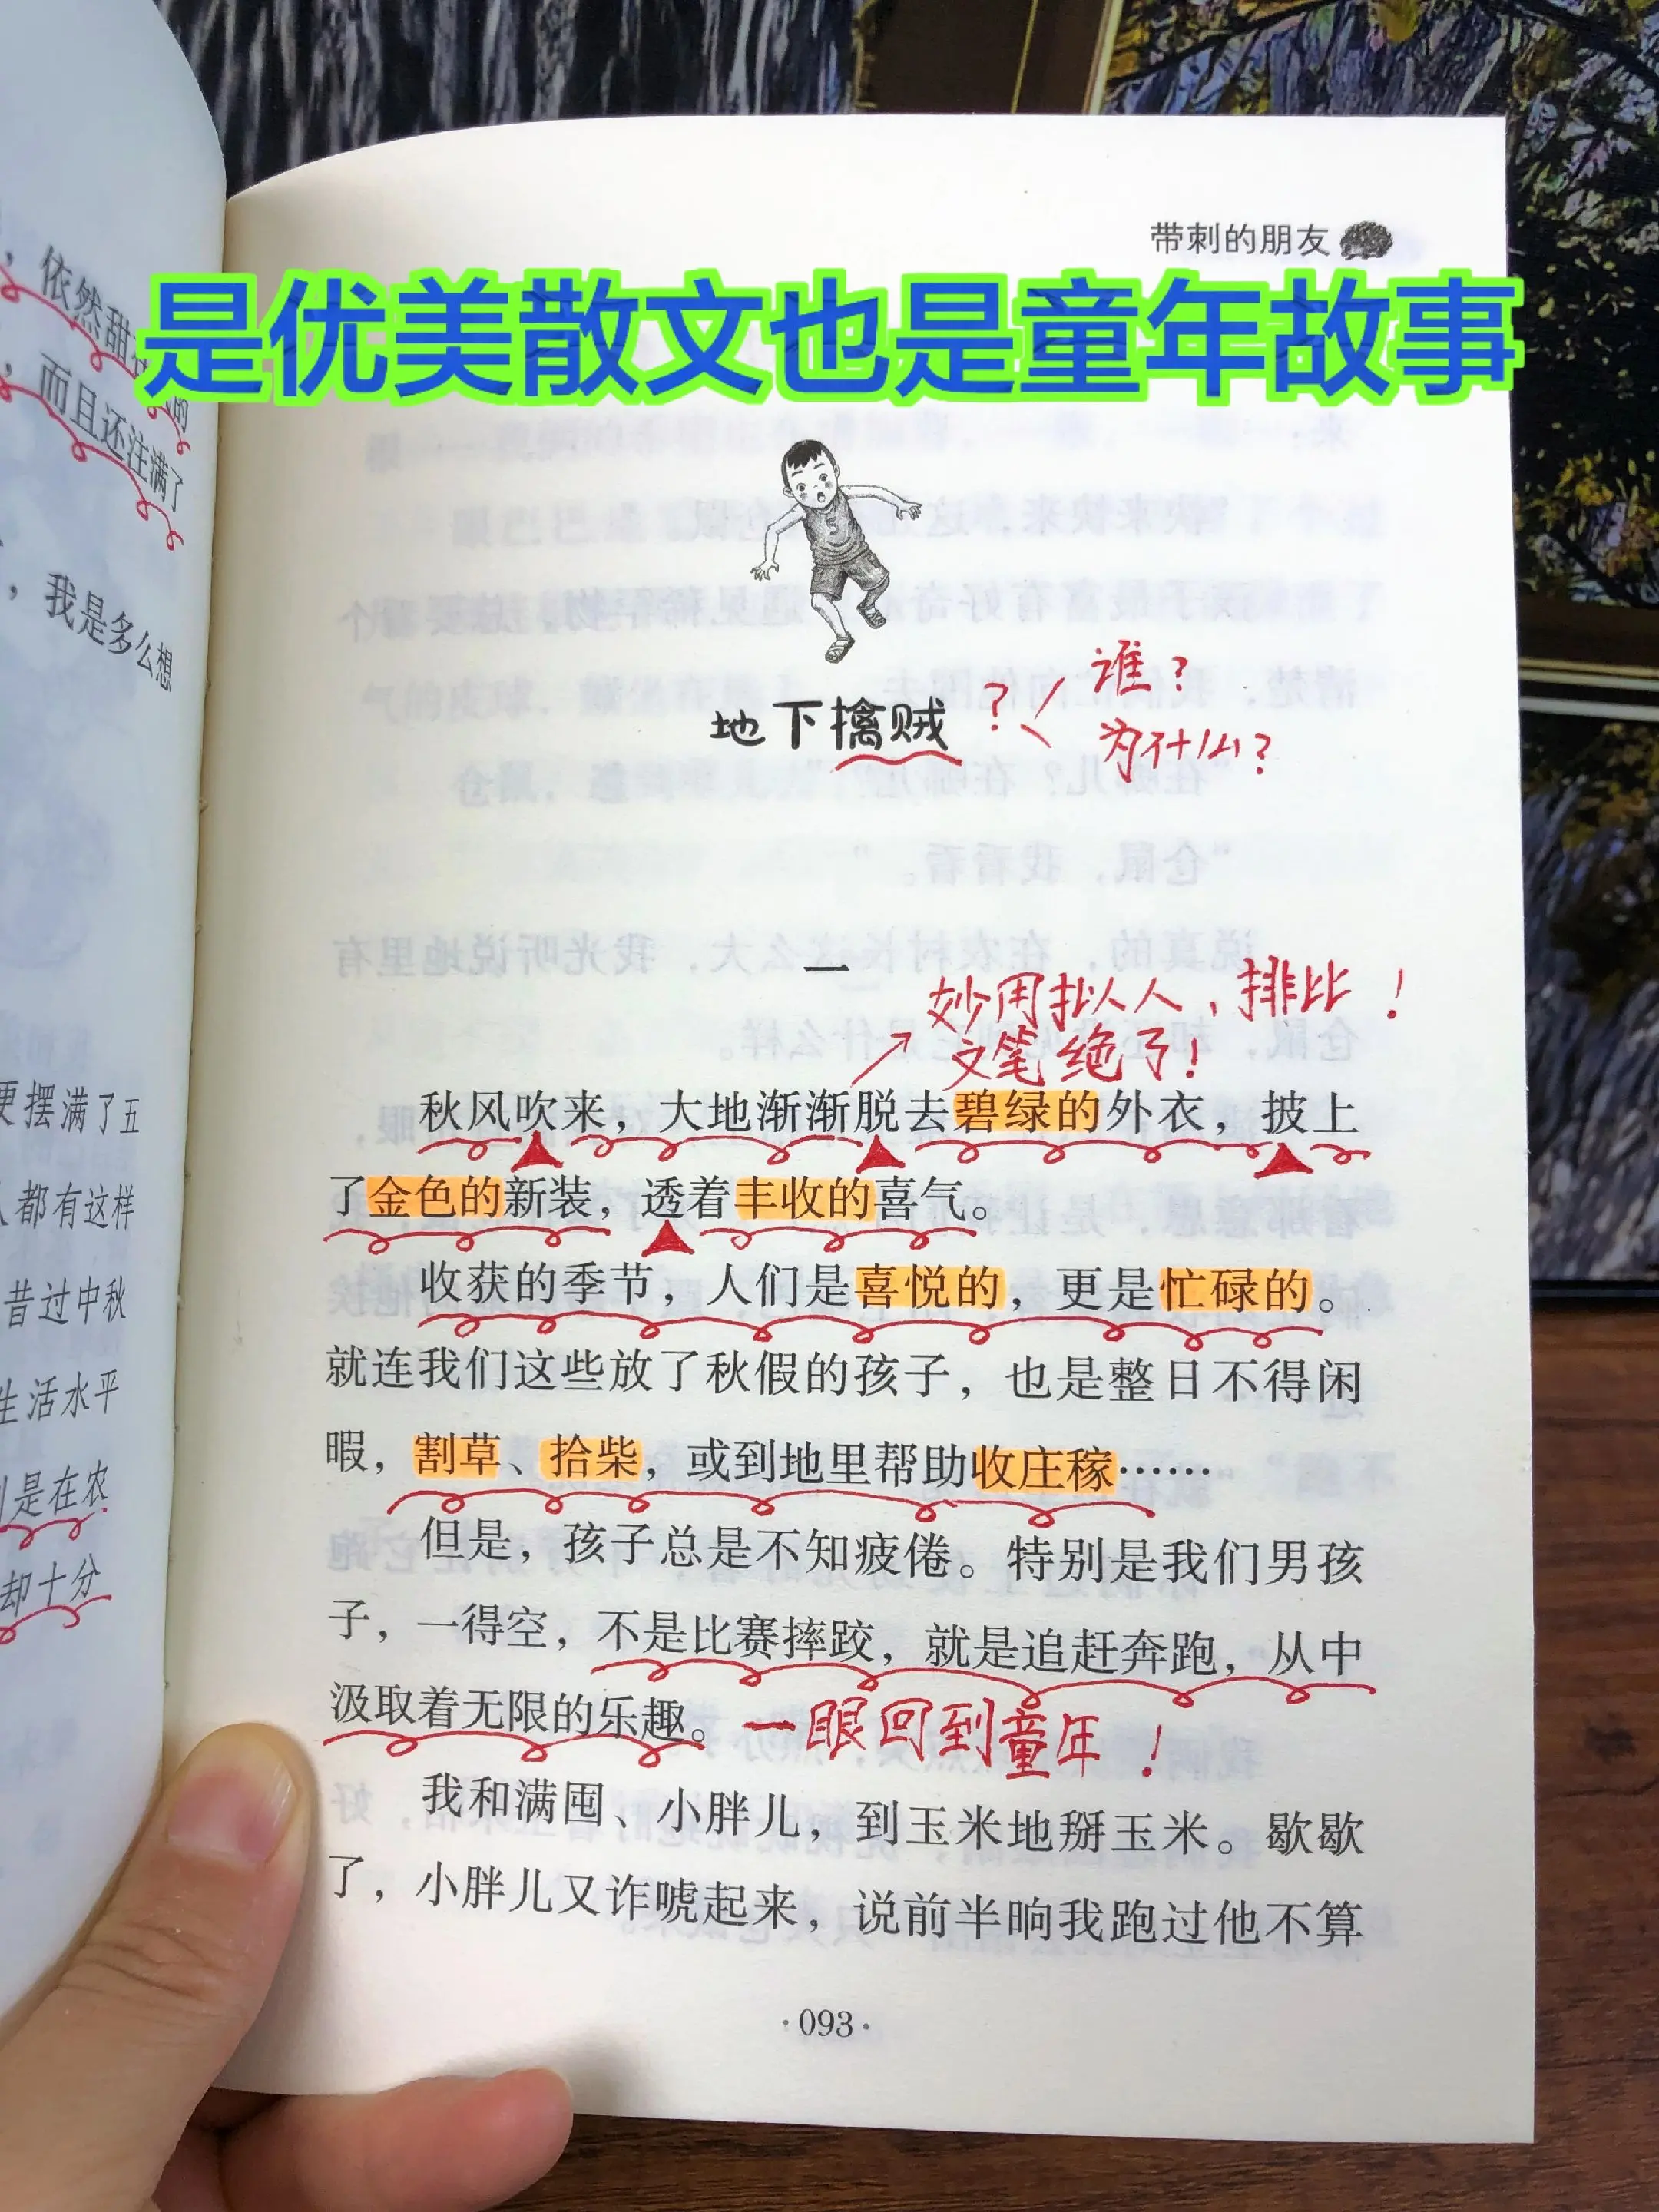 带刺的朋友
是优美散文也是童年故事
，依然甜
，而且还注满了
，我是多么想
更摆满了五
人都有这样
昔过中秋
生活水平
是在农
却十分
地下擒贼
？
谁？
为什么？
一
妙用拟人，排比！
文笔绝了！
秋风吹来，大地渐渐脱去碧绿的外衣，披上
了金色的新装，透着丰收的喜气。
收获的季节，人们是喜悦的，更是忙碌的。
就连我们这些放了秋假的孩子，也是整日不得闲
暇，割草、拾柴，或到地里帮助收庄稼……
但是，孩子总是不知疲倦。特别是我们男孩
子，一得空，不是比赛摔跤，就是追赶奔跑，从中
汲取着无限的乐趣。
一眼回到童年！
我和满囤、小胖儿，到玉米地掰玉米。歇歇
了，小胖儿又诈唬起来，说前半晌我跑过他不算
·093·